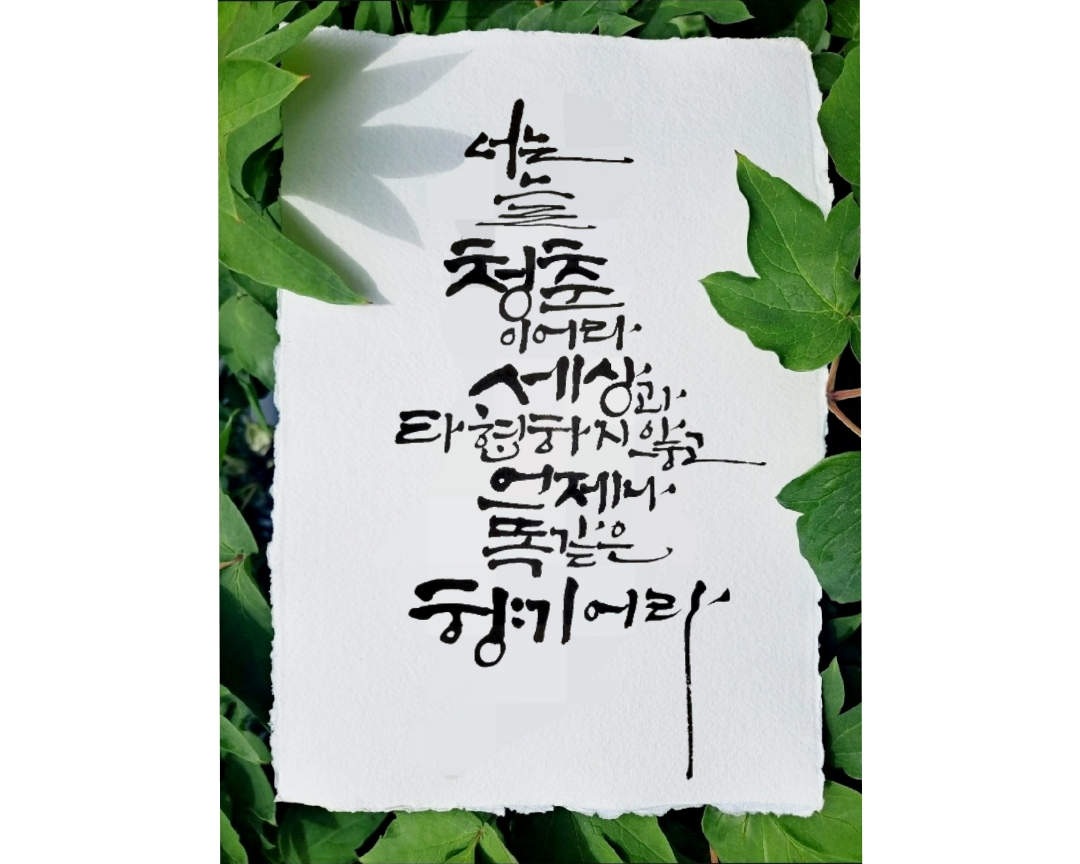 너는
늘
청춘
이어라
세상과
타협하지 않고
언제나
똑같은
향기어라